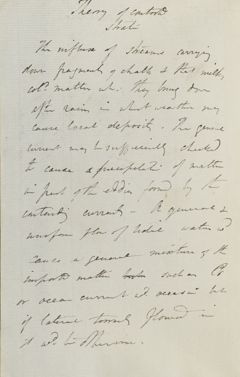 Theory of contorted
Strata
The influx of streams carrying
down fragments of chalk & that milky
cold matter wh. they bring down
after rain, in what weather may
cause local deposits. The general
current may be sufficiently checked
to cause a precipitation of matter
in part of the eddies formed by the
contending currents — A general &
uniform flow of tidal water wd
cause a general mixture of the
imported matter
or ocean current wd occasion
if lateral torrents flowed in
it wd be otherwise.